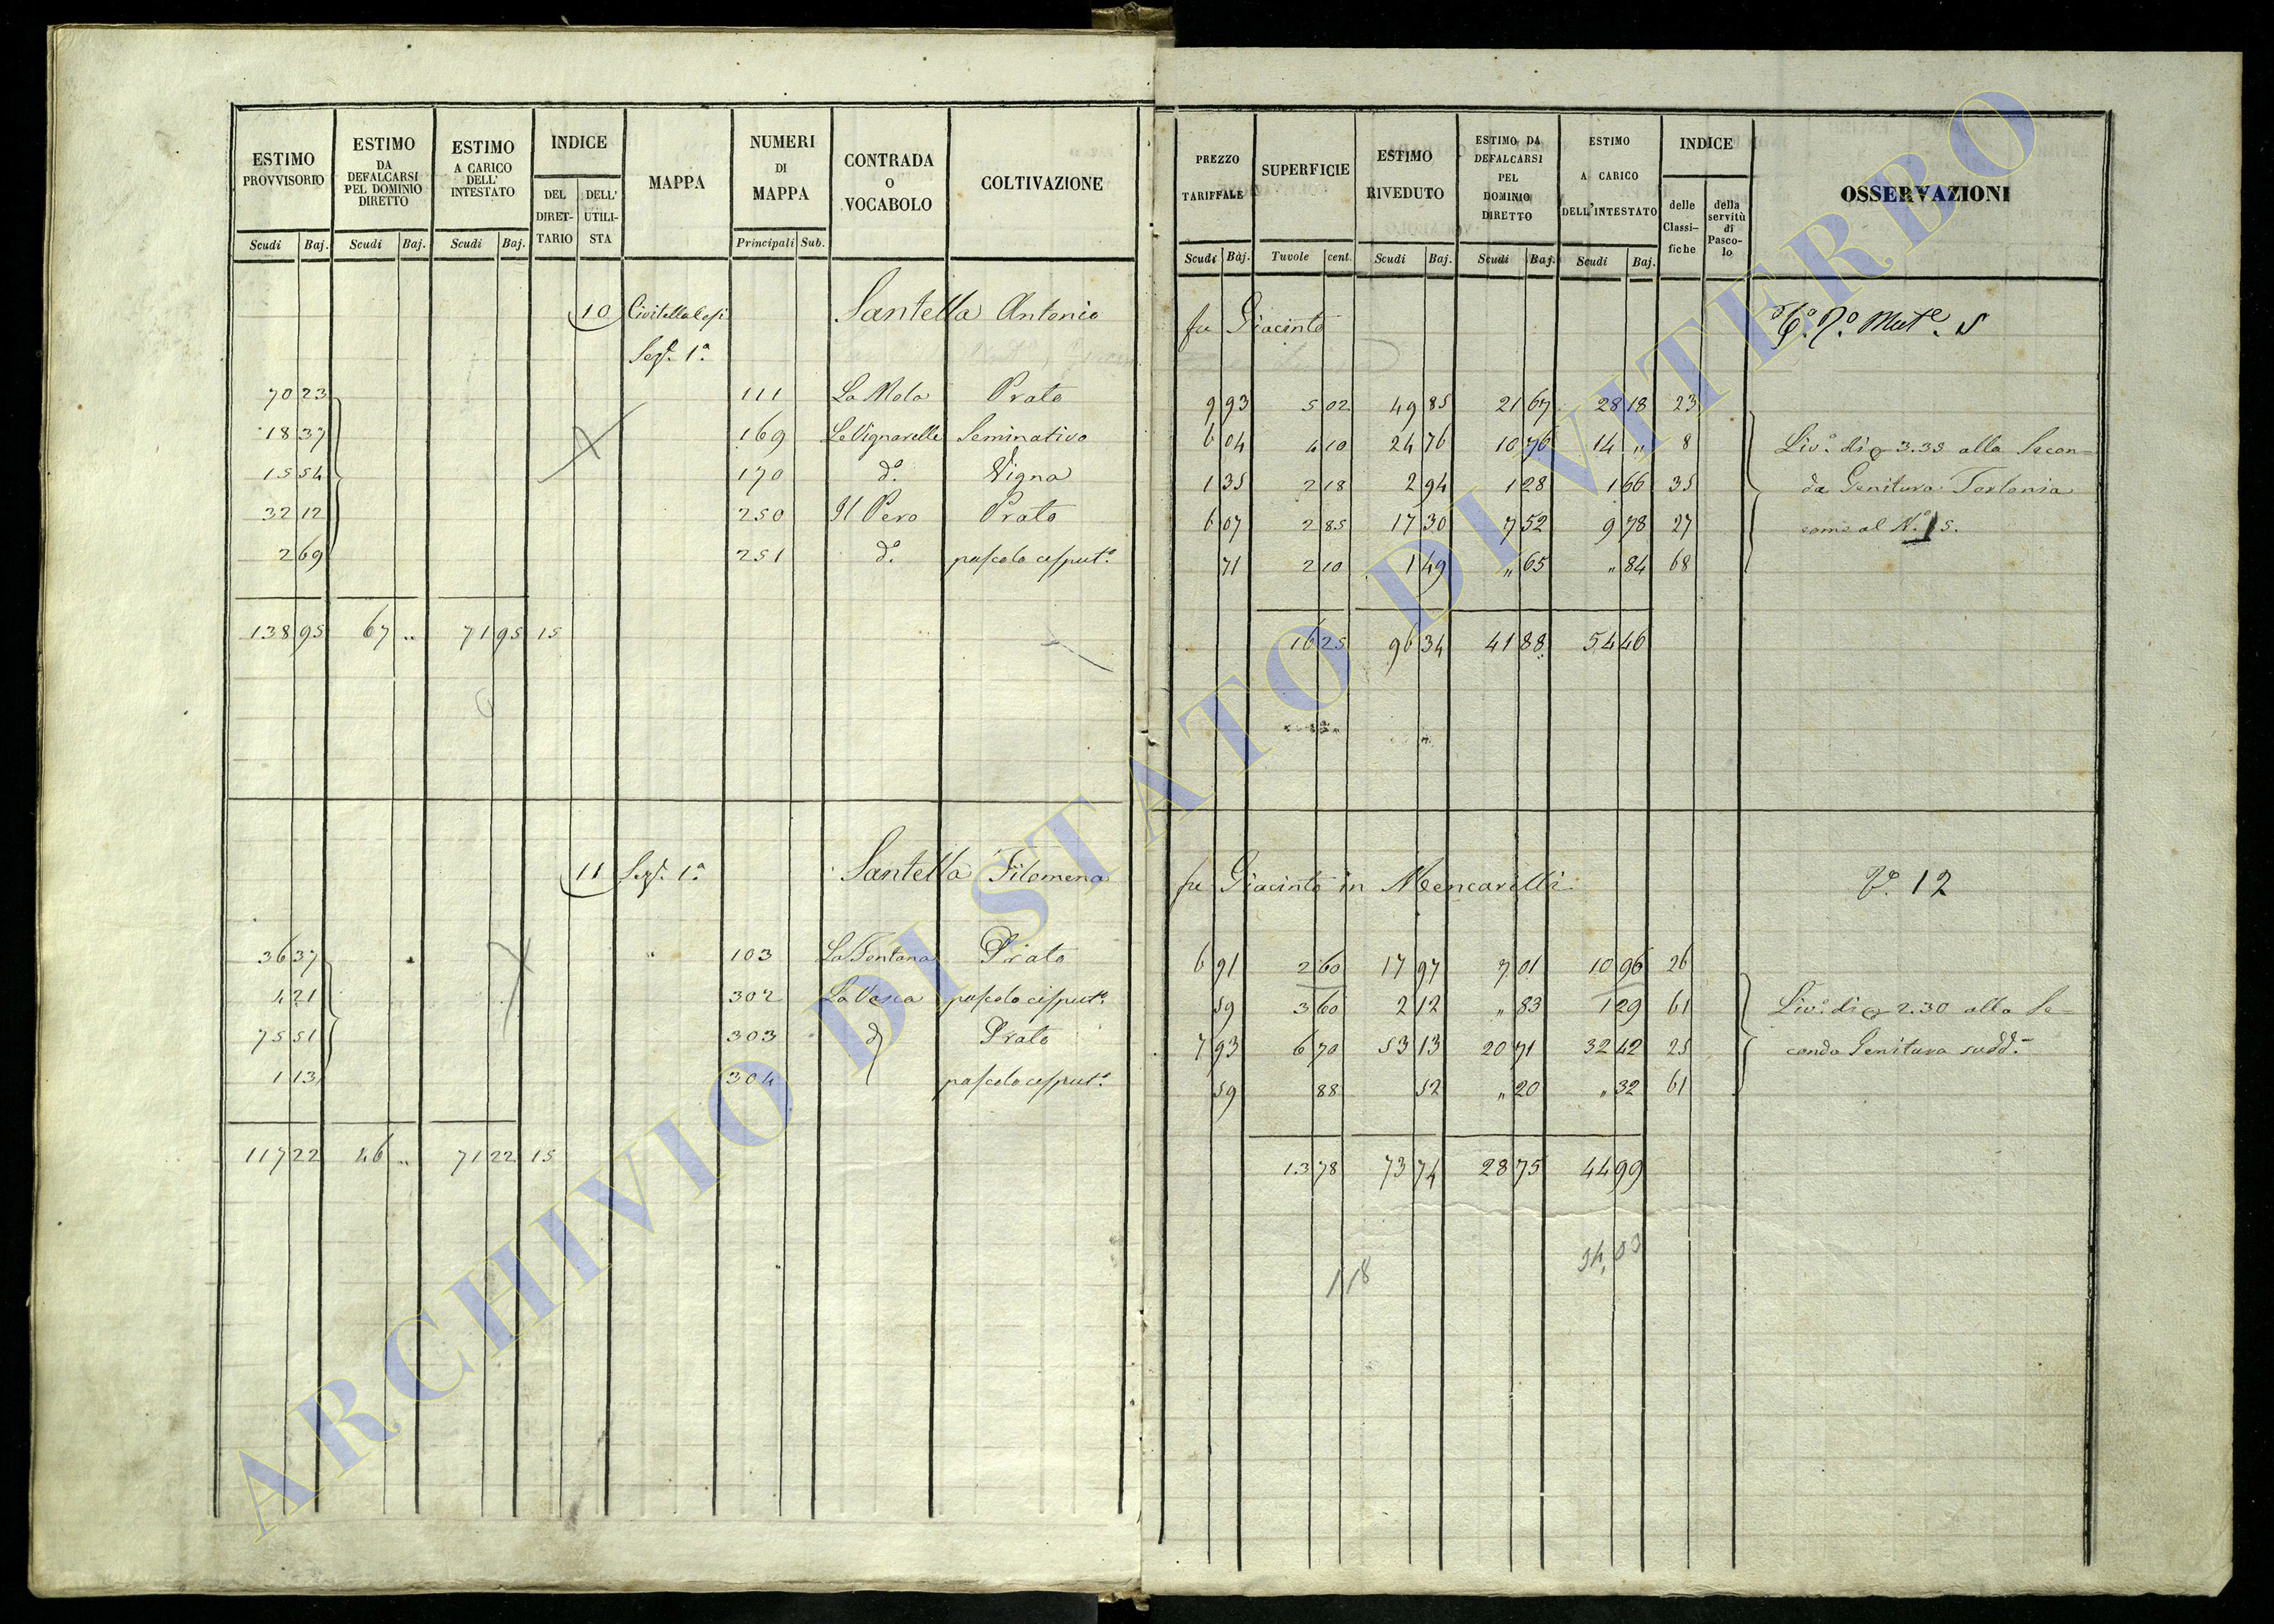 ESTIMO PROVVISORIO | ESTIMO DA DEFALCARSI PEL DOMINIO DIRETTO | ESTIMO A CARICO DELL' INTESTATO | INDICE | MAPPA | NUMERI DI MAPPA | CONTRADA O VOCABOLO | COLTIVAZIONE | PREZZO TARIFFALE | SUPERFICIE | ESTIMO RIVEDUTO | ESTIMO DA DEFALCARSI PEL DOMINIO DIRETTO | ESTIMO A CARICO DELL'INTESTATO | INDICE | OSSERVAZIONI
DEL DIRETTARIO | DELL' UTILISTA | delle Classifiche | della servitù di Pascolo
Scudi | Baj. | Scudi | Baj. | Scudi | Baj. | Principali | Sub. | Scudi | Baj. | Tavole | cent. | Scudi | Baj. | Scudi | Baj. | Scudi | Baj.
10 | Civitella Cesi | Santella Antonio fu Giacinto
Sezne. 1a.
70 23 | 111 | La Mola | Prato | 9 93 | 5 02 | 49 85 | 21 67 | 28 18 | 23
18 37 | 169 | Le Vignarelle | Seminativo | 6 04 | 4 10 | 24 76 | 10 76 | 14 " | 8 | Livo. di 3.35 alla Secon-
15 54 | 170 | do. | Vigna | 1 35 | 2 18 | 2 94 | 1 28 | 1 66 | 35 | da Genitura Torlonia
32 12 | 250 | Il Pero | Prato | 6 07 | 2 85 | 17 30 | 7 52 | 9 78 | 27 | come al No. 15.
2 69 | 251 | do. | pascolo cesputo. | 71 | 2 10 | 1 49 | " 65 | " 84 | 68
138 95 | 67 " | 71 95 | 15 | 16 25 | 96 34 | 41 88 | 54 46
11 | Sezne. 1a. | Santella Filomena fu Giacinto in Mencarelli | 12
36 37 | 103 | La Fontana | Prato | 6 91 | 2 60 | 17 97 | 7 01 | 10 96 | 26
4 21 | 302 | La Vasca | pascolo cesputo. | 59 | 3 60 | 2 12 | " 83 | 1 29 | 61 | Livo. di 2.30 alla Se-
75 51 | 303 | do | Prato | 7 93 | 6 70 | 53 13 | 20 71 | 32 42 | 25 | conda Genitura sudd.
1 13 | 304 | pascolo cesputo. | 59 | 88 | 52 | " 20 | " 32 | 61
117 22 | 46 " | 71 22 | 15 | 13 78 | 73 74 | 28 75 | 44 99
118
ARCHIVIO DI STATO DI VITERBO